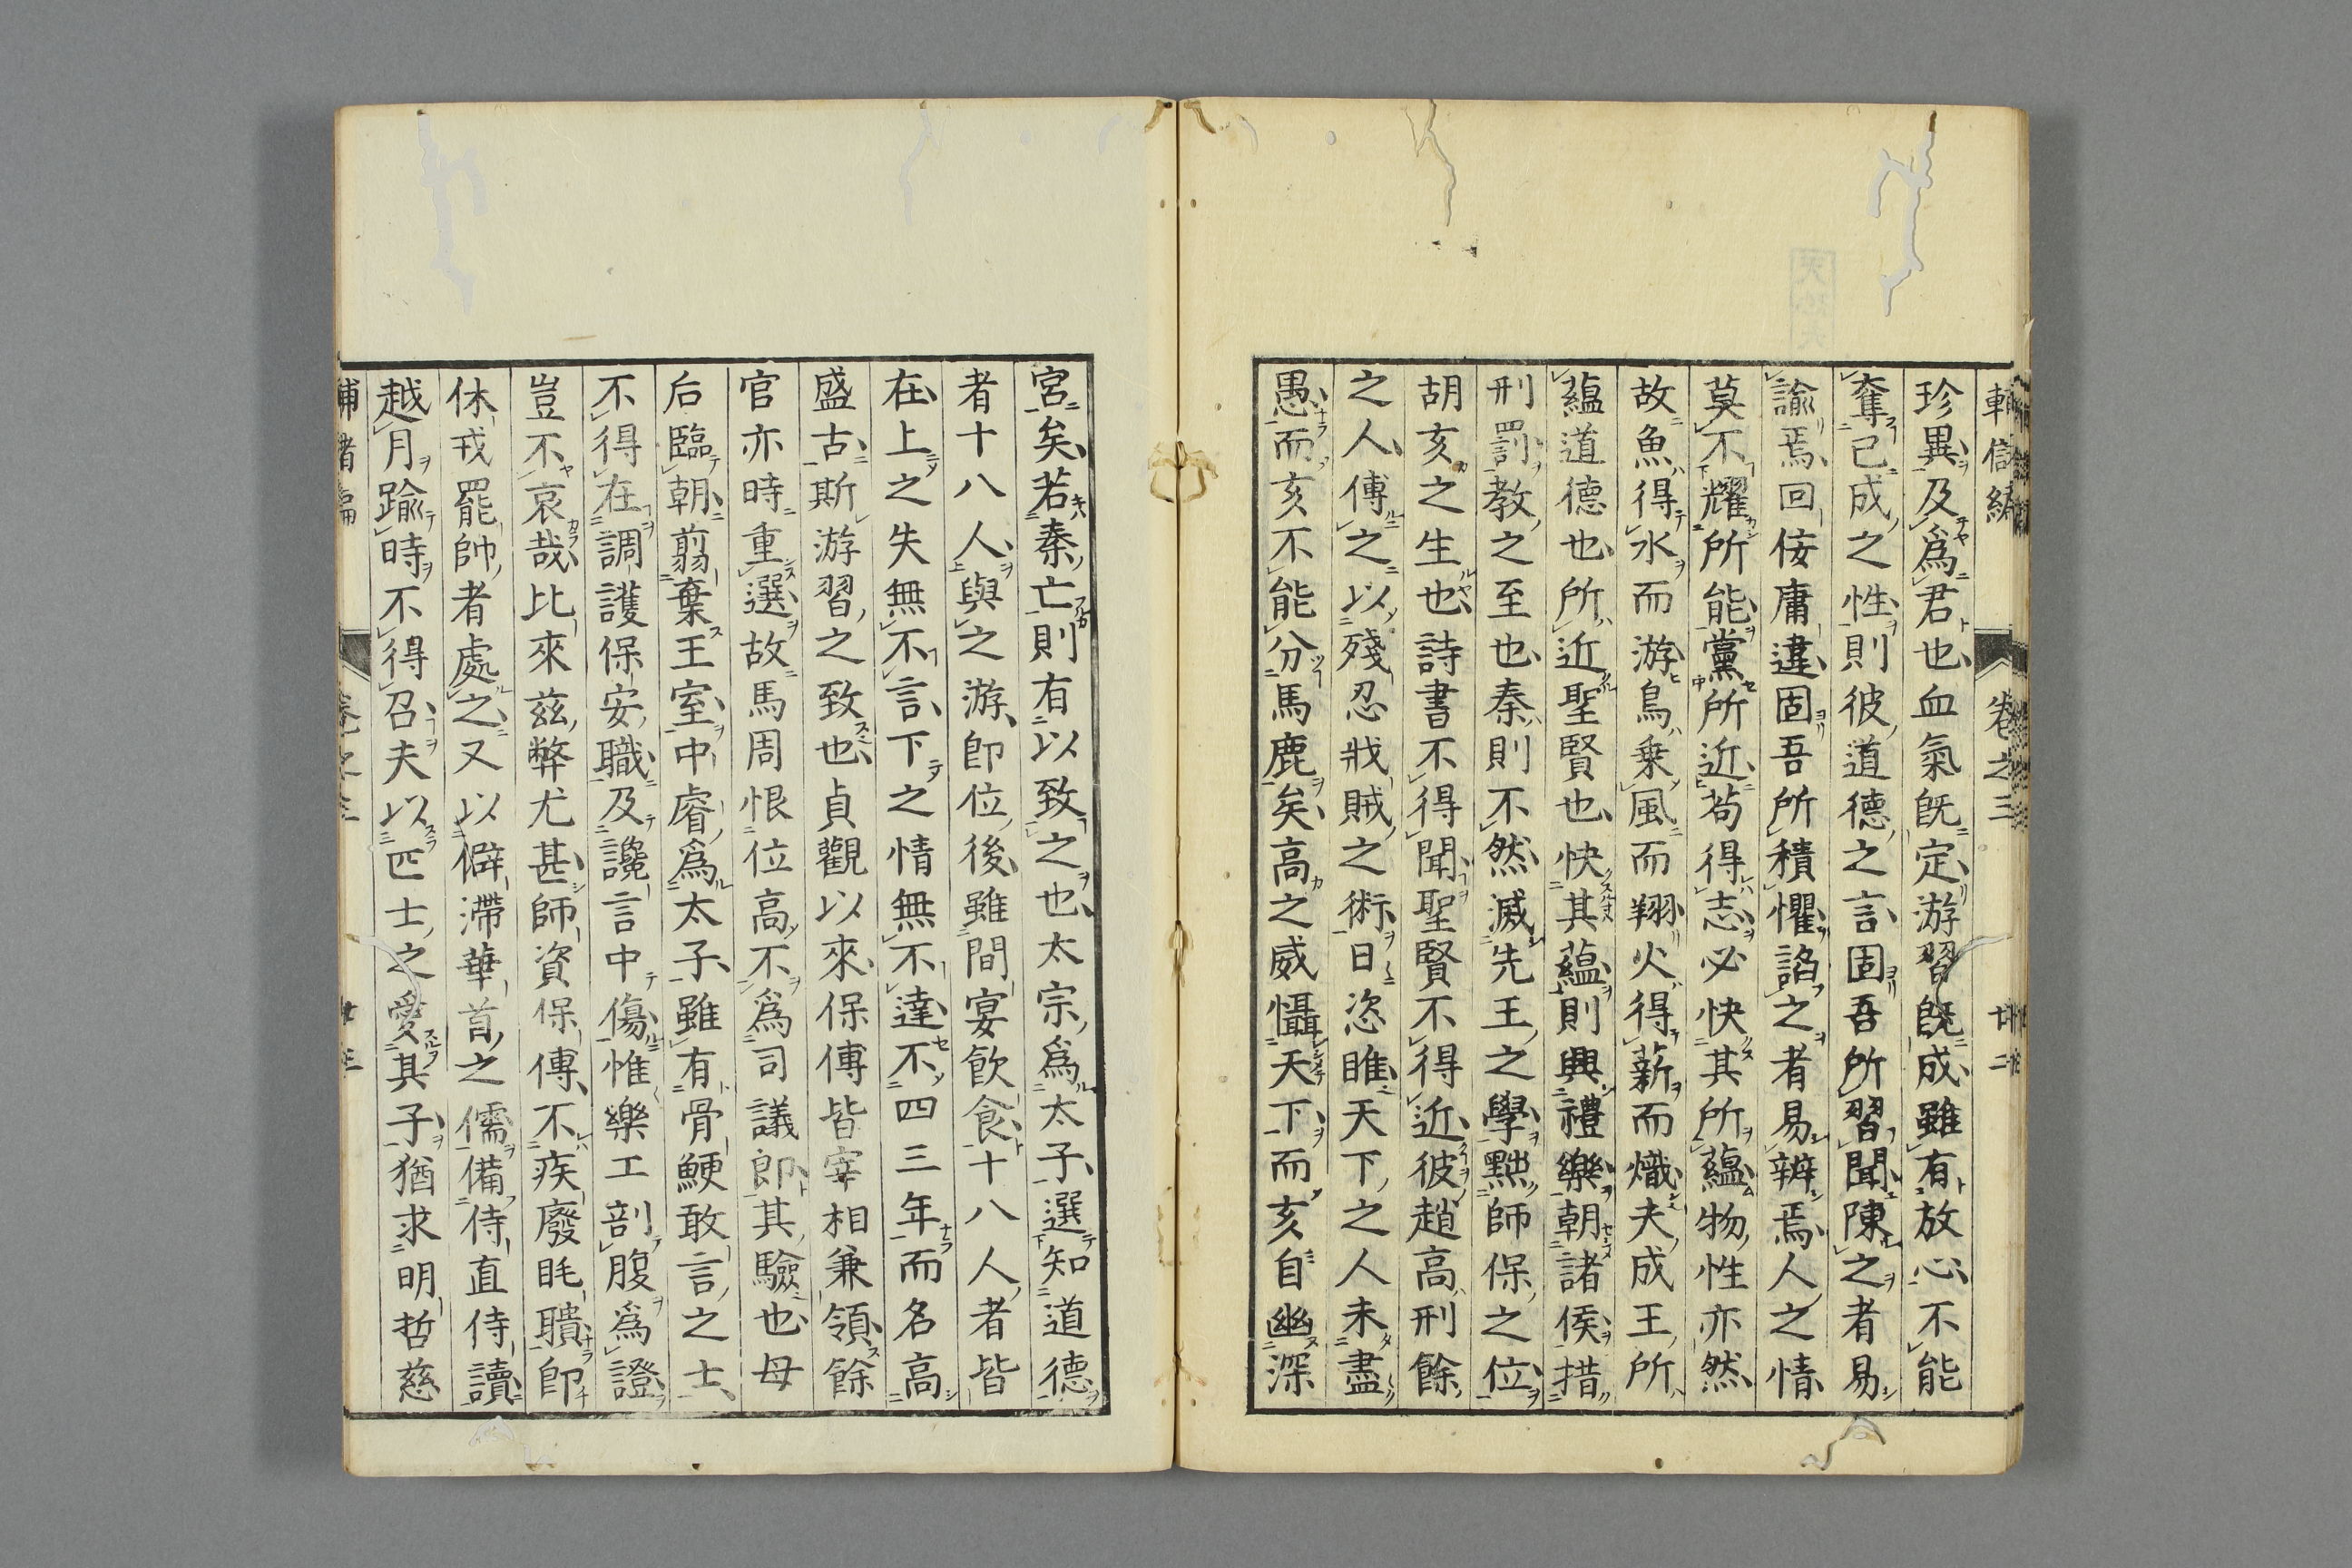 珍異及爲君也血氣既定游習既成雖有放心不能
奪已成之性則彼道德之言固吾所習聞陳之者易
諭焉回佞庸違固吾所積懼諂之者易辨焉人之情
莫不耀所能黨所近苟得志必快其所蘊物性亦然
故魚得水而游鳥乗風而翔火得薪而熾夫成王所
蘊道德也所近聖賢也快其蘊則興禮樂朝諸侯措
刑罰教之至也秦則不然滅先王之學黜師保之位
胡亥之生也詩書不得聞聖賢不得近彼趙高刑餘
之人傅之以殘忍戕賊之術日恣睢天下之人未盡
愚而亥不能分馬鹿矣高之威懾天下而亥自幽深
卷之三
廿二
宮矣若秦亡則有以致之也太宗爲太子選知道德
者十八人與之游卽位後雖間宴飲食十八人者皆
在上之失無不言下之情無不達不四三年而名高
盛古斯游習之致也貞觀以來保傅皆宰相兼領餘
官亦時重選故馬周恨位高不爲司議郎其驗也母
后臨朝翦棄王室中睿爲太子雖有骨鯁敢言之士
不得在調護保安職及讒言中傷惟樂工剖腹爲證
豈不哀哉比來茲弊尤甚師資保傅不疾廢眊聵卽
休戎罷帥者處之又以僻滯華首之儒備侍直侍讀
越月踰時不得召夫以匹士之愛其子猶求明哲慈